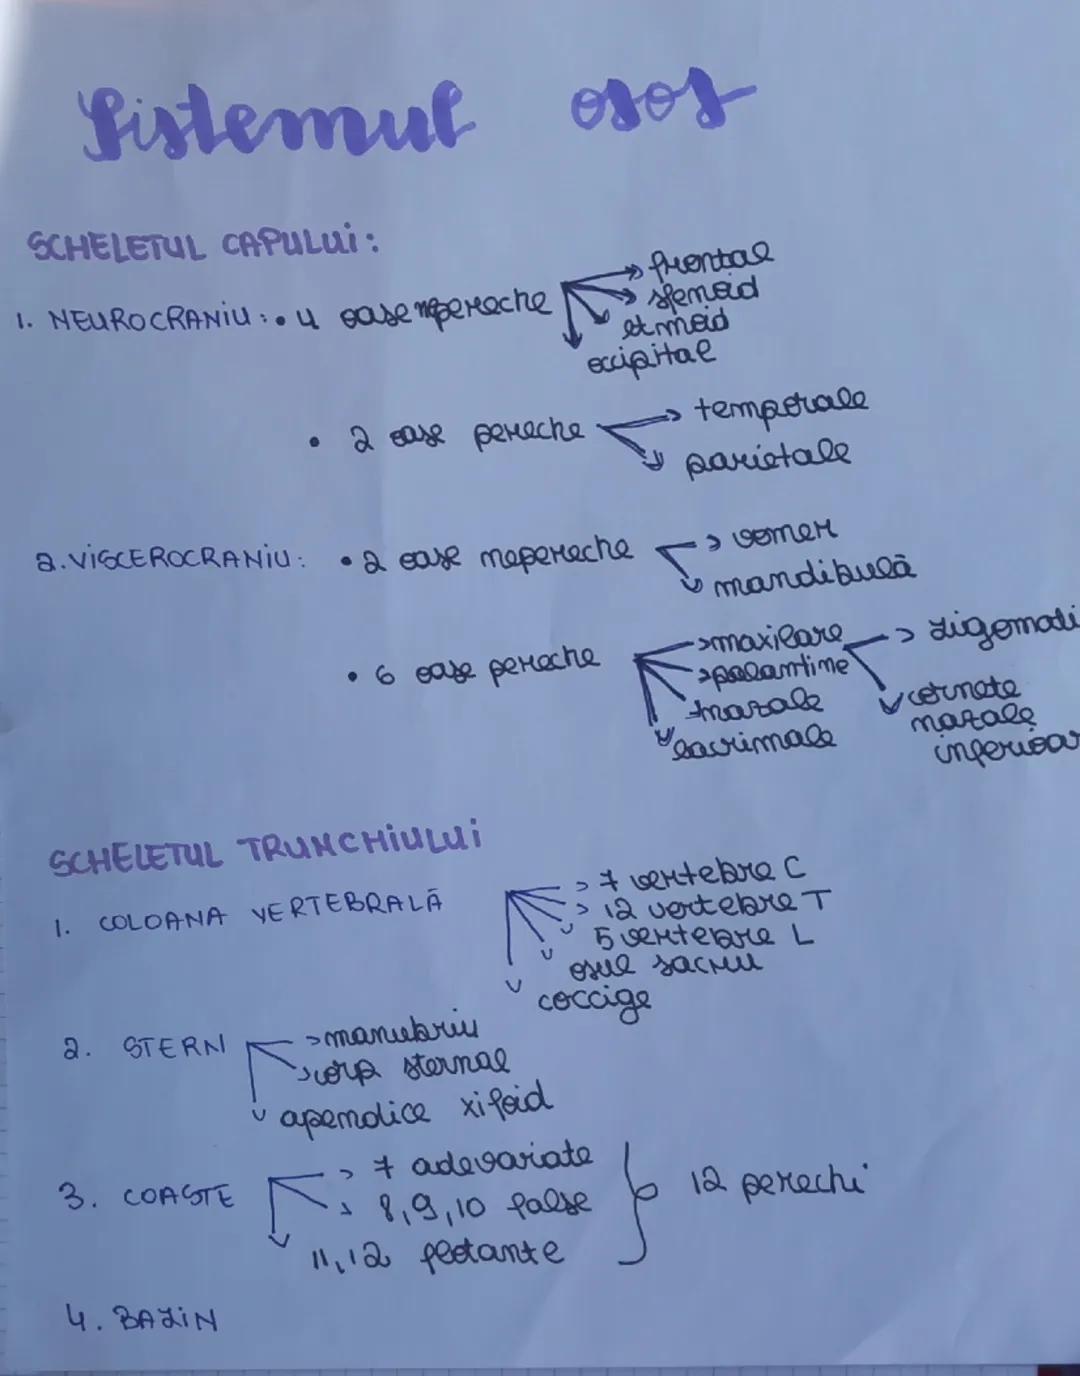 Sistemul osos
SCHELETUL CAPULUI:
1. NEUROCRANIU: • 4 oase nepereche → frontal
→ sfenoid
etmoid
occipital
• 2 oase pereche → temporale
parietale
2. VISCEROCRANIU: • 2 oase nepereche → vomer
mandibulă
• 6 oase pereche → maxilare → zigomati
→ palantime
nazale
lacrimale
cornete
nazale
inferioar
SCHELETUL TRUNCHIULUI
1. COLOANA VERTEBRALĂ → 7 vertebre C
→ 12 vertebre T
5 vertebre L
osul sacru
coccige
2. STERN → manubriu
corp sternal
apendice xifoid
3. COASTE → 7 adevariate
8,9,10 false
11,12 flotante
12 perechi
4. BAZIN